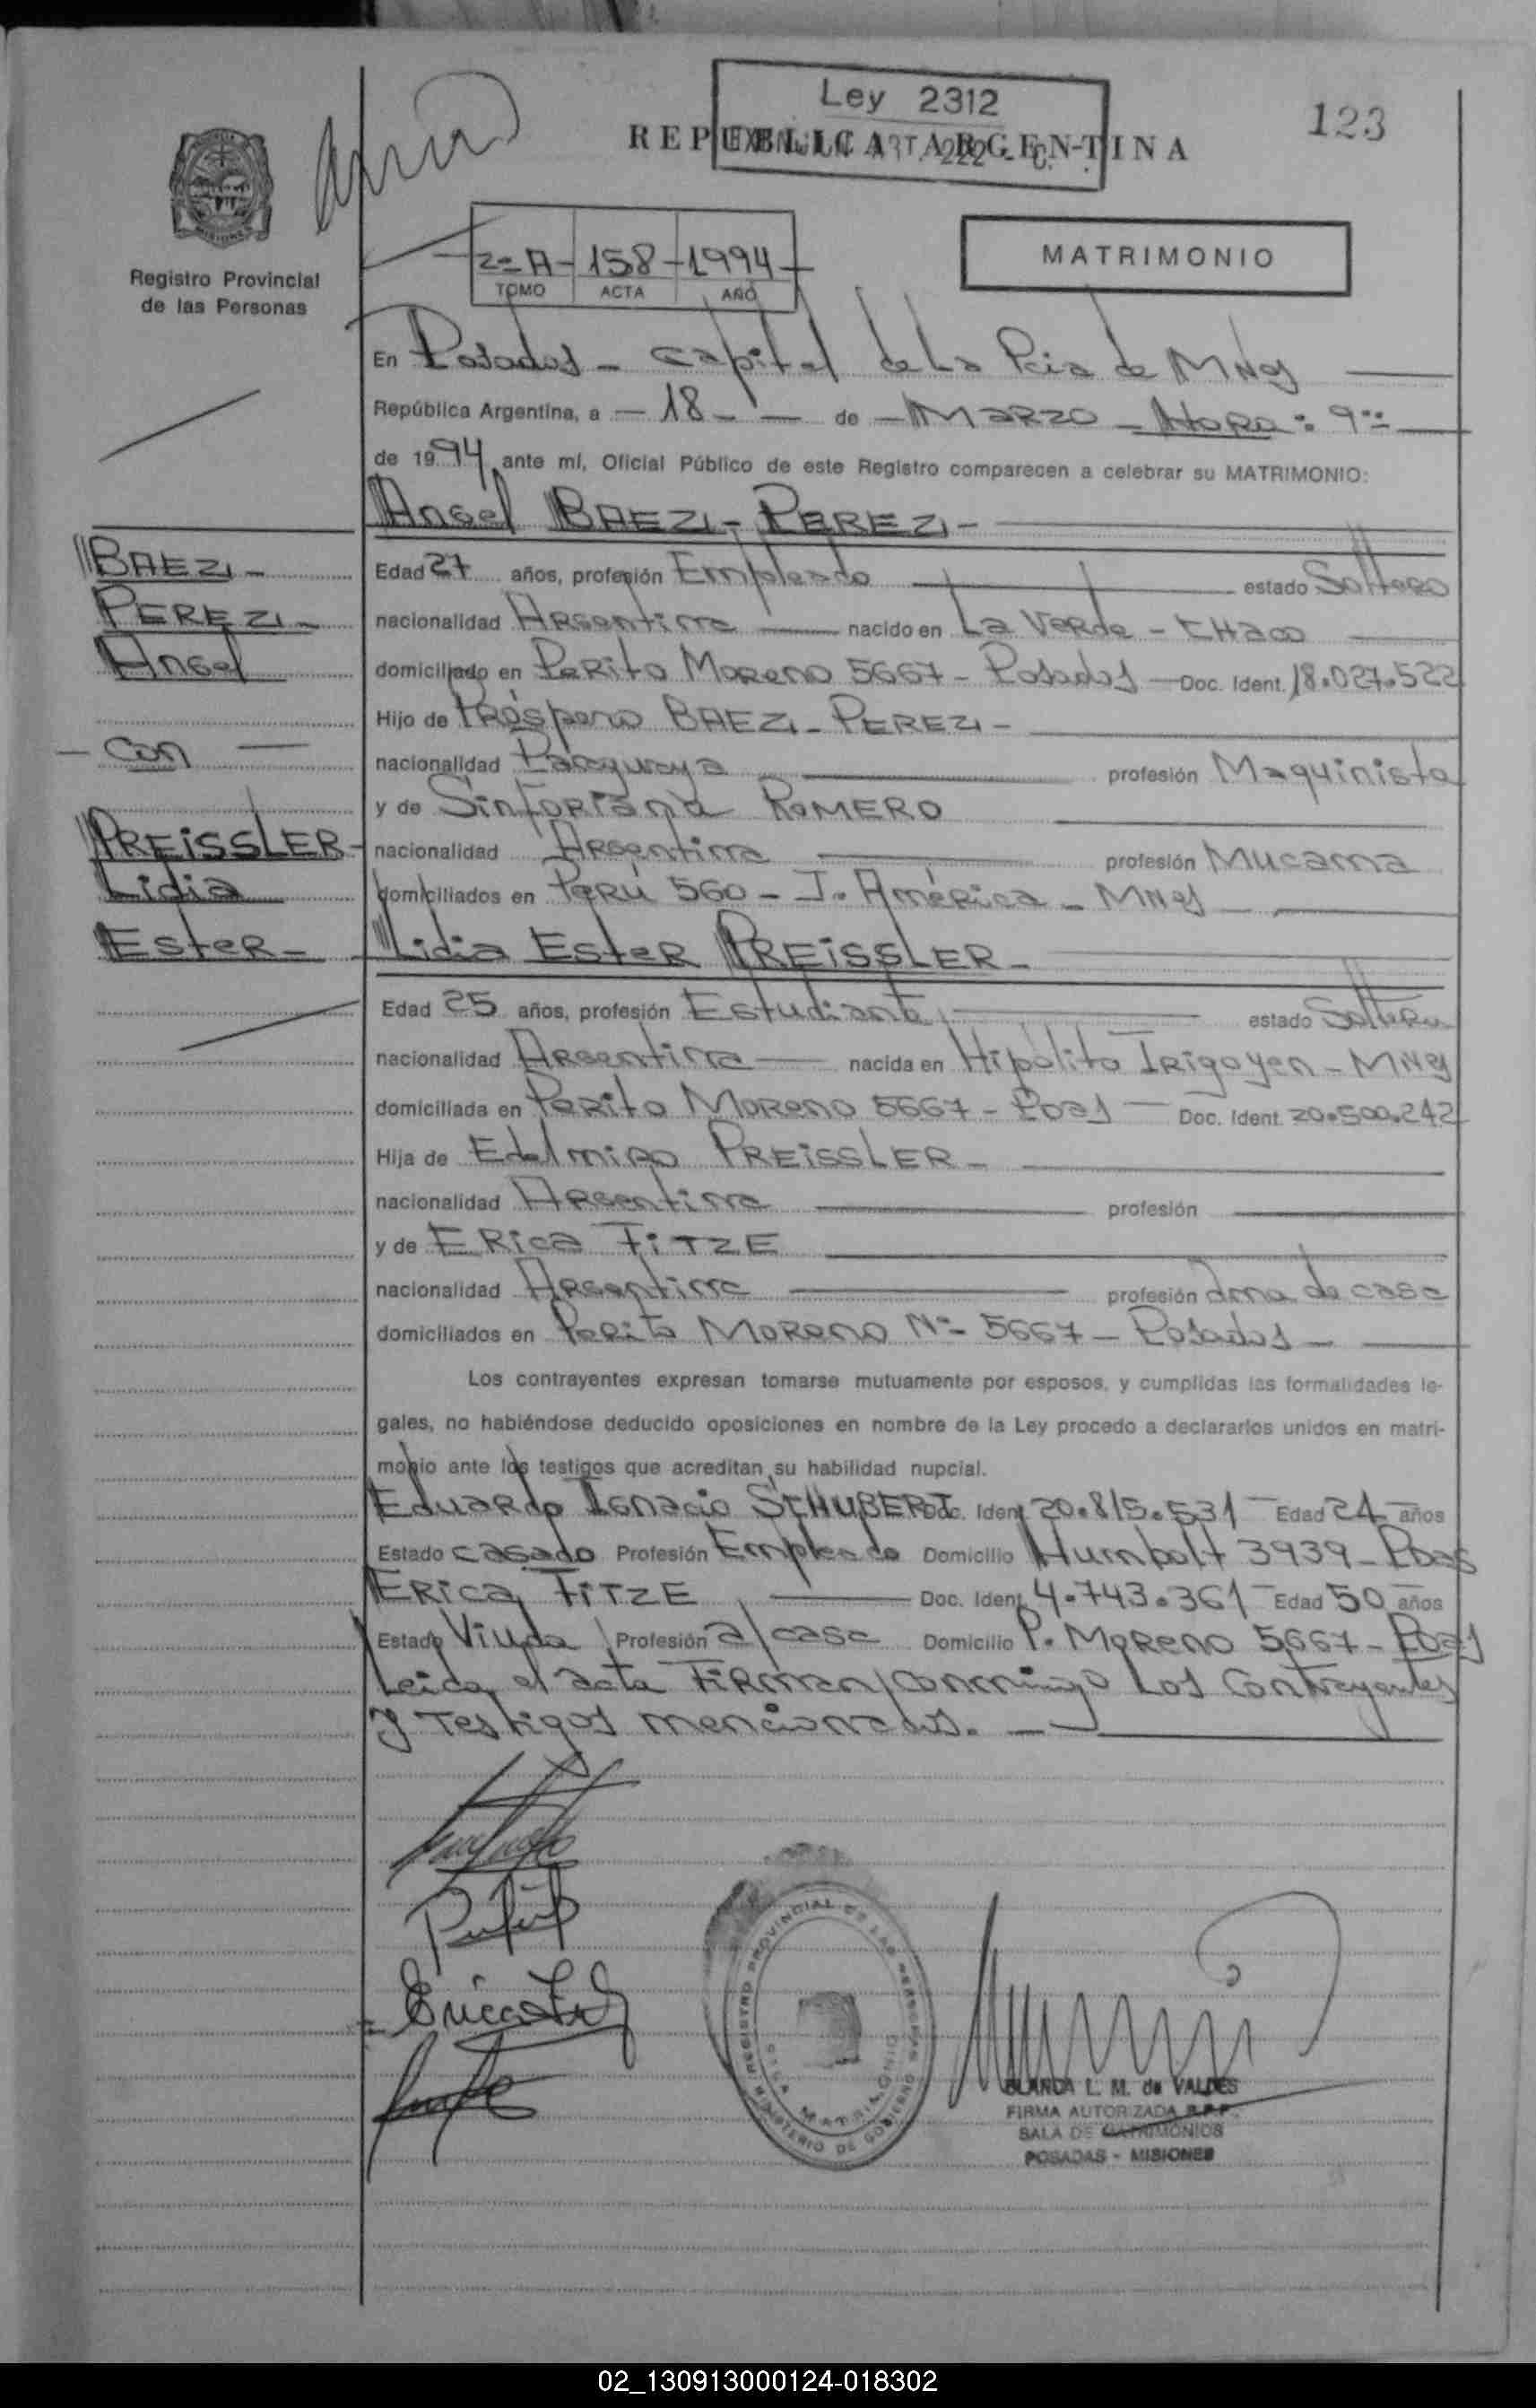 Ley 2312
123
REPUBLICA ARGENTINA
2º A - 158 - 1994
TOMO ACTA AÑO
MATRIMONIO
Registro Provincial
de las Personas
En Posadas - capital de La Pcia de Mnes
República Argentina, a - 18 - de - Marzo - Hora: 9
de 1994, ante mí, Oficial Público de este Registro comparecen a celebrar su MATRIMONIO:
Angel BAEZ - PEREZ -
BAEZ -
PEREZ -
Angel
- Con -
PREISSLER -
Lidia
Ester -
Edad 27 años, profesión Empleado estado Soltero
nacionalidad Argentina nacido en La Verde - CHaco
domiciliado en Perito Moreno 5667 - Posadas - Doc. Ident. 18.027.522
Hijo de Próspero BAEZ - PEREZ -
nacionalidad Paraguaya profesión Maquinista
y de Sinforiana ROMERO
nacionalidad Argentina profesión Mucama
domiciliados en Perú 560 - J. América - Mnes
Lidia Ester PREISSLER -
Edad 25 años, profesión Estudiante estado Soltera
nacionalidad Argentina nacida en Hipólito Irigoyen - Mnes
domiciliada en Perito Moreno 5667 - Pdas - Doc. Ident. 20.500.242
Hija de Edelmiro PREISSLER -
nacionalidad Argentina profesión
y de ERica FiTZE
nacionalidad Argentina profesión ama de casa
domiciliados en Perito Moreno Nº 5667 - Posadas -
Los contrayentes expresan tomarse mutuamente por esposos, y cumplidas las formalidades le-
gales, no habiéndose deducido oposiciones en nombre de la Ley procedo a declararlos unidos en matri-
monio ante los testigos que acreditan su habilidad nupcial.
Eduardo Ignacio SCHUBERT Doc. Ident. 20.815.531 - Edad 24 años
Estado casado Profesión Empleado Domicilio Humbolt 3939 - Pdas
ERica FiTZE Doc. Ident. 4.743.361 - Edad 50 años
Estado Viuda Profesión a/casa Domicilio P. Moreno 5667 - Pdas
Leida el acta Firman conmigo Los Contrayentes
y Testigos mencionados. -
REGISTRO PROVINCIAL DE LAS PERSONAS
SALA MATRIMONIO
MINISTERIO DE GOBIERNO
BLANCA L. M. de VALDES
FIRMA AUTORIZADA R.P.P.
SALA DE MATRIMONIOS
POSADAS - MISIONES
02_130913000124-018302